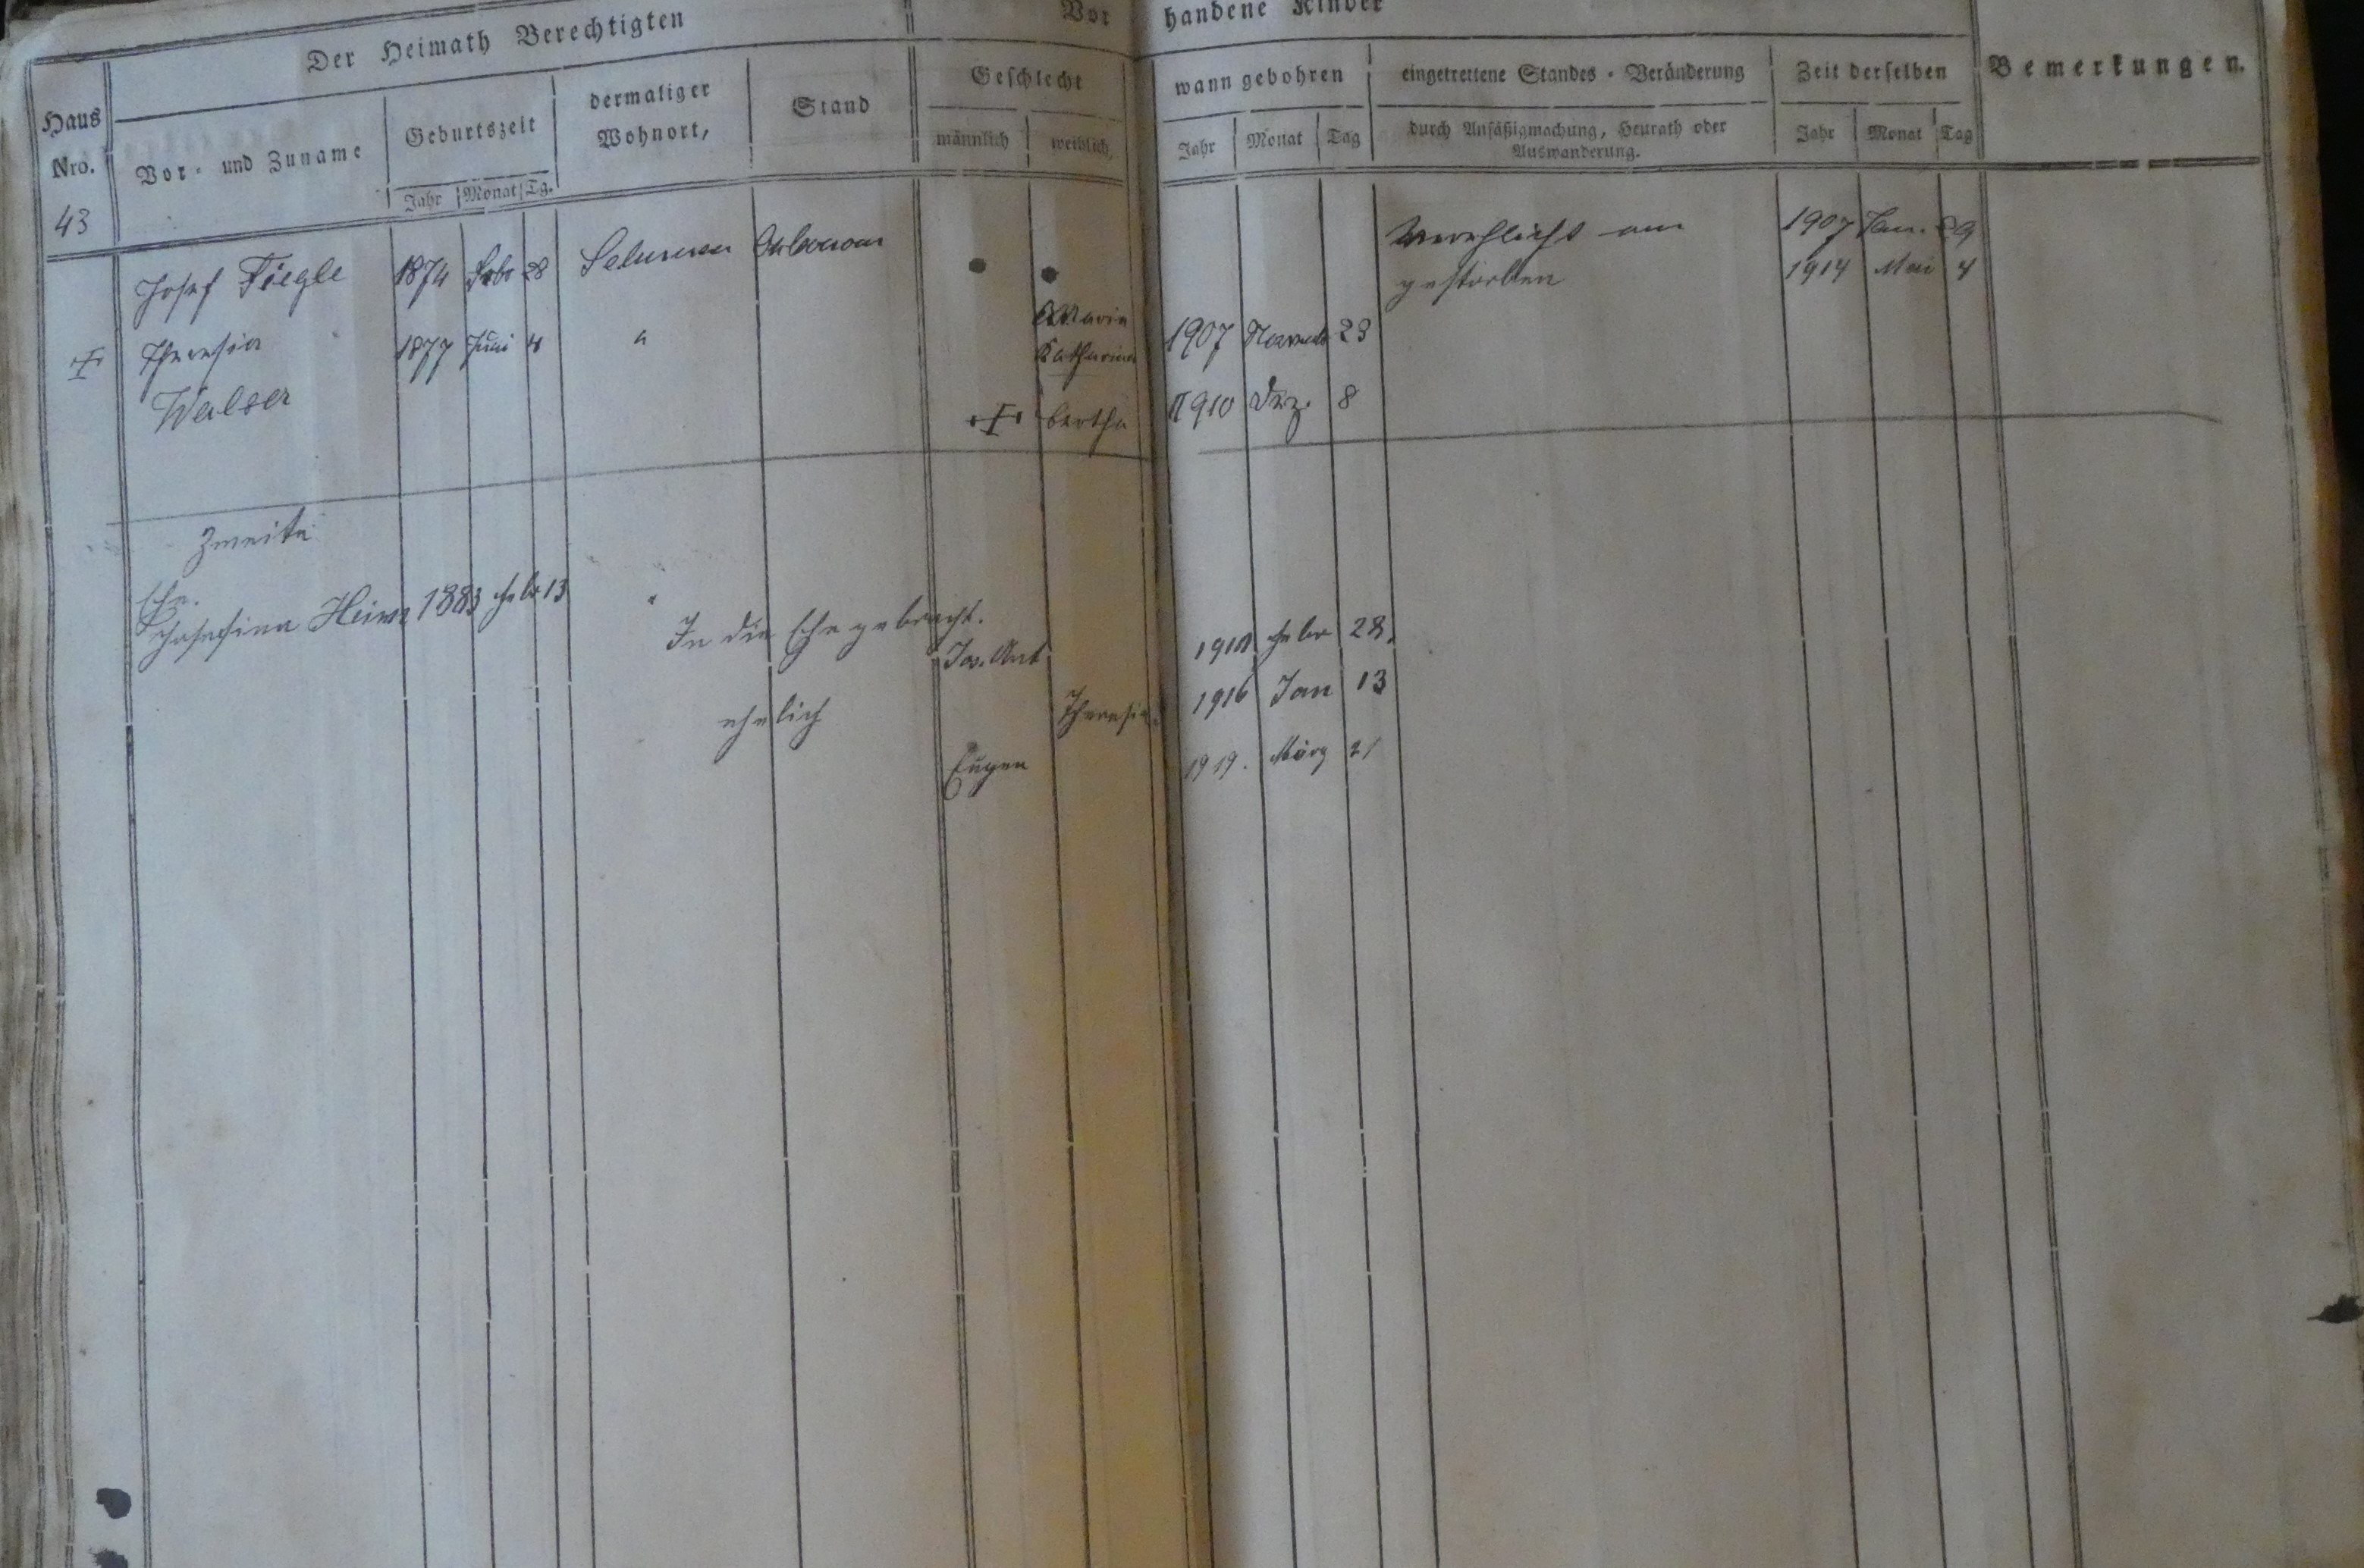 Der Heimath Berechtigten
Vor handene Kinder
Haus Nro.
Vor- und Zuname
Geburtszeit
Jahr Monat Tg.
dermaliger Wohnort,
Stand
Geschlecht
männlich weiblich,
wann gebohren
Jahr Monat Tag
eingetrettene Standes-Veränderung
durch Ansäßigmachung, Heurath oder
Auswanderung.
Zeit derselben
Jahr Monat Tag
Bemerkungen.
43
Josef Fiegle 1874 Febr 28
Verehlicht am 1907 Jan. 29
gestorben 1914 Mai 4
Theresia 1877 Juni 4 "
Walser
Maria
Katharina 1907 Novemb 23
Bertha 1910 Dez. 8
Zweite
Ehe.
Josefina Heim 1883 Febr 13 "
In die Ehe gebracht.
Jos. Ant Febr 28.
ehelich Theresia 1916 Jan 13
Eugen 1919. März 21